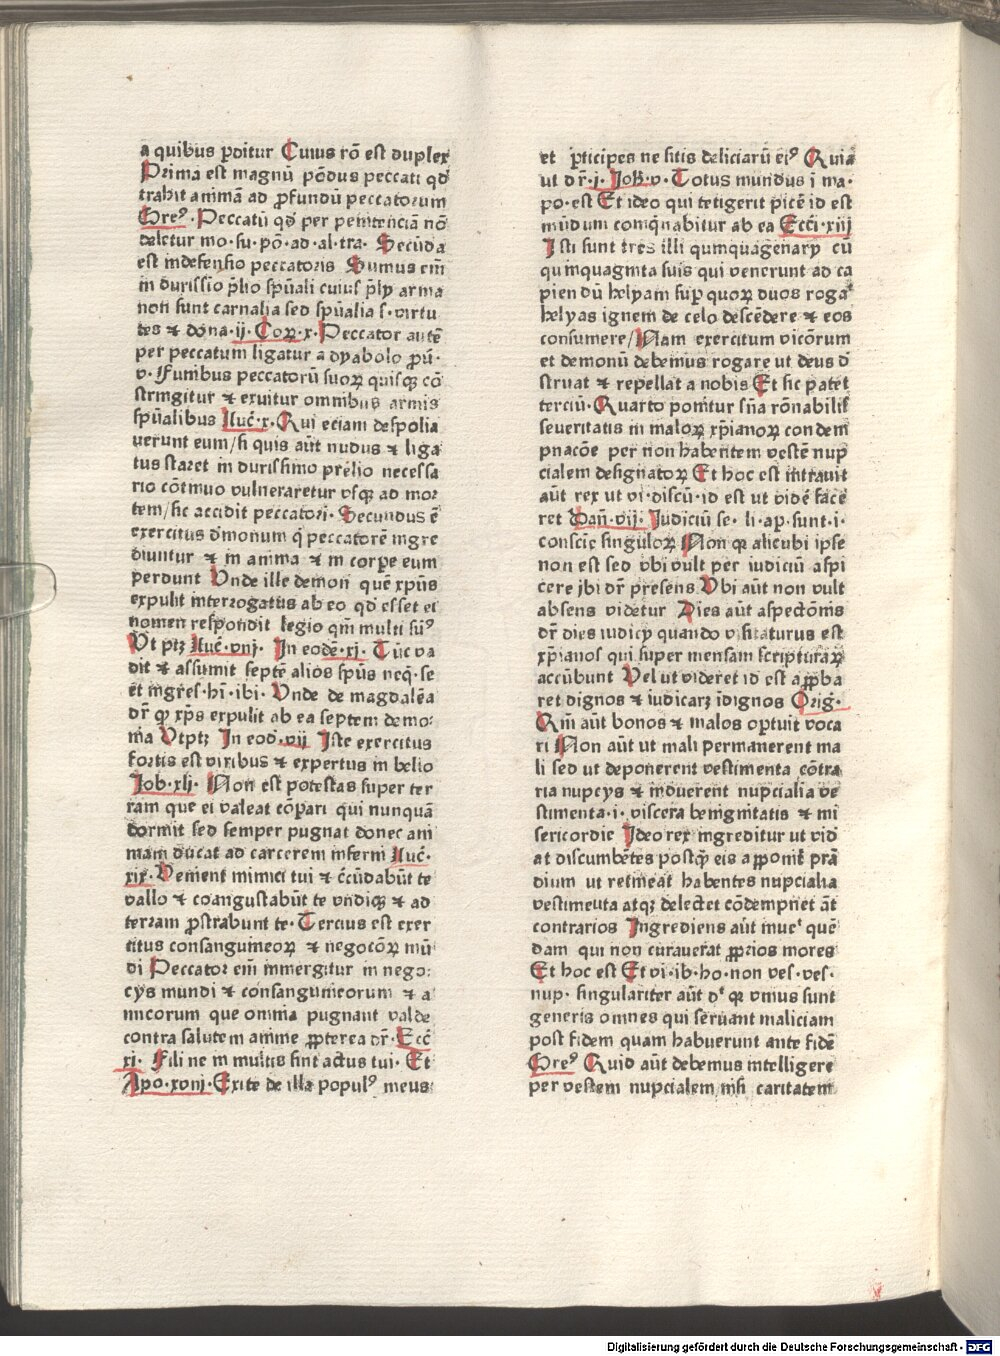 a quibus ꝑditur Cuius rō est duplex
Prima est magnū pōdus peccati qd
trahit animā ad ꝓfundū peccatorum
Gre⁹. Peccatū qd per penitenciā nō
deletur mo·su·pō·ad·al·tra· Secūda
est indefensio peccatoris Sumus em̄
in durissio p̄lio sp̄uali cuius p̄ly arma
non sunt carnalia sed sp̄ualia s·virtu
tes ⁊ dona·ij·Coꝝ·x·Peccator autē
per peccatum ligatur a dyabolo ꝓu̅·
v· Funibus peccatorū suoꝝ quisqꝫ cō
stringitur ⁊ exuitur omnibus armis
sp̄ualibus Luc̄·x·Qui eciam despolia
uerunt eum/si quis aūt nudus ⁊ liga
tus staret in durissimo prelio necessa
rio cōtinuo vulneraretur vsqꝫ ad mor
tem/sic accidit peccatori· Secundus ē
exercitus dmonum q̇ peccatorē ingre
diuntur ⁊ in anima ⁊ in corpe eum
perdunt Vnde ille demon quē xp̄us
expulit interrogatus ab eo qd esset ei
nomen respondit legio qm̄ multi su⁹
Vt ptꝫ Luc̄·viij· In eodē·xj· Tūc va
dit ⁊ assumit septē alios sp̄us neq̇·se
et ingres·hi·ibi· Vnde de magdalēa
dr̄ ꝙ xp̄s expulit ab ea septem demo:
nia Vtptꝫ In eod̄·vij Iste exercitus
fortis est viribus ⁊ expertus in bello
Job·xlj· Non est potestas super ter
ram que ei valeat cōpari qui nunquā
dormit sed semper pugnat donec ani
mam ducat ad carcerem inferni Luc̄·
xix·Venient inimici tui ⁊ c̄cūdabūt te
vallo ⁊ coangustabūt te vndiqꝫ ⁊ ad
terram ꝓstrabunt te· Tercius est exer
citus consanguineoꝝ ⁊ negotōꝝ mū
di Peccator em̄ immergitur in nego:
cys mundi ⁊ consanguineorum ⁊ a
micorum que omnia pugnant valde
contra salutem anime ꝓpterea dr̄· Ecc̄
xj· Fili ne in multis sint actus tui· Et
Apo·xviij·Exite de illa popul⁹ meus
et ꝑticipes ne sitis deliciarū ei⁹ Quia
ut dr̄·j·Joh̄·v·Totus mundus ī ma·
po·est Et ideo qui tetigerit picē id est
mūdum comq̇nabitur ab ea Ecci·xiij
Isti sunt tres illi qumquagenary cū
quinquaginta suis qui venerunt ad ca
piendū helyam suꝑ quoꝝ duos roga
helyas ignem de celo descēdere ⁊ eos
consumere/Nam exercitum vicōrum
et demonū debemus rogare ut deus d̄
struat ⁊ repellat a nobis Et sic patet
terciū· Quarto ponitur sn̄a rōnabilis
seueritatis in maloꝝ xp̄ianoꝝ condem
pnacōe per non habentem vestē nup
cialem designatoꝝ Et hoc est intrauit
aūt rex ut vi·discū·id est ut vidē face
ret Dan̄·vij· Judiciū se·li·ap·sunt·i·
conscie singuloꝝ Non qꝛ alicubi ipse
non est sed vbi vult per iudiciū aspi
cere ibi dr̄ presens Vbi aūt non vult
absens videtur Dies aūt aspectōnis
dr̄ dies iudicy quando visitaturus est
xp̄ianos qui super mensam scripturaꝝ
accūbunt Vel ut videret id est aꝓba
ret dignos ⁊ iudicarꝫ īdignos Orig·
Qm̄ aūt bonos ⁊ malos optuit voca
ri Non aūt ut mali permanerent ma
li sed ut deponerent vestimenta cōtra
ria nupcys ⁊ induerent nupcialia ve
stimenta·i·viscera benignitatis ⁊ mi
sericordie Ideo rex ingreditur ut vid
at discumbētes postq̄ eis aꝓponit̄ prā
dium ut retineat habentes nupcialia
vestimenta atqꝫ delectet cōdempnet āt
contrarios Ingrediens aūt inuet̄ quē
dam qui non curauerat ꝓprios mores
Et hoc est Et vi·ib·ho·non ves·ves·
nup· singulariter aūt d̄t qꝛ vnius sunt
generis omnes qui seruant maliciam
post fidem quam habuerunt ante fidē
Gre⁹ Quid aūt debemus intelligere
per vestem nupcialem/nisi caritatem
Digitalisierung gefördert durch die Deutsche Forschungsgemeinschaft - DFG